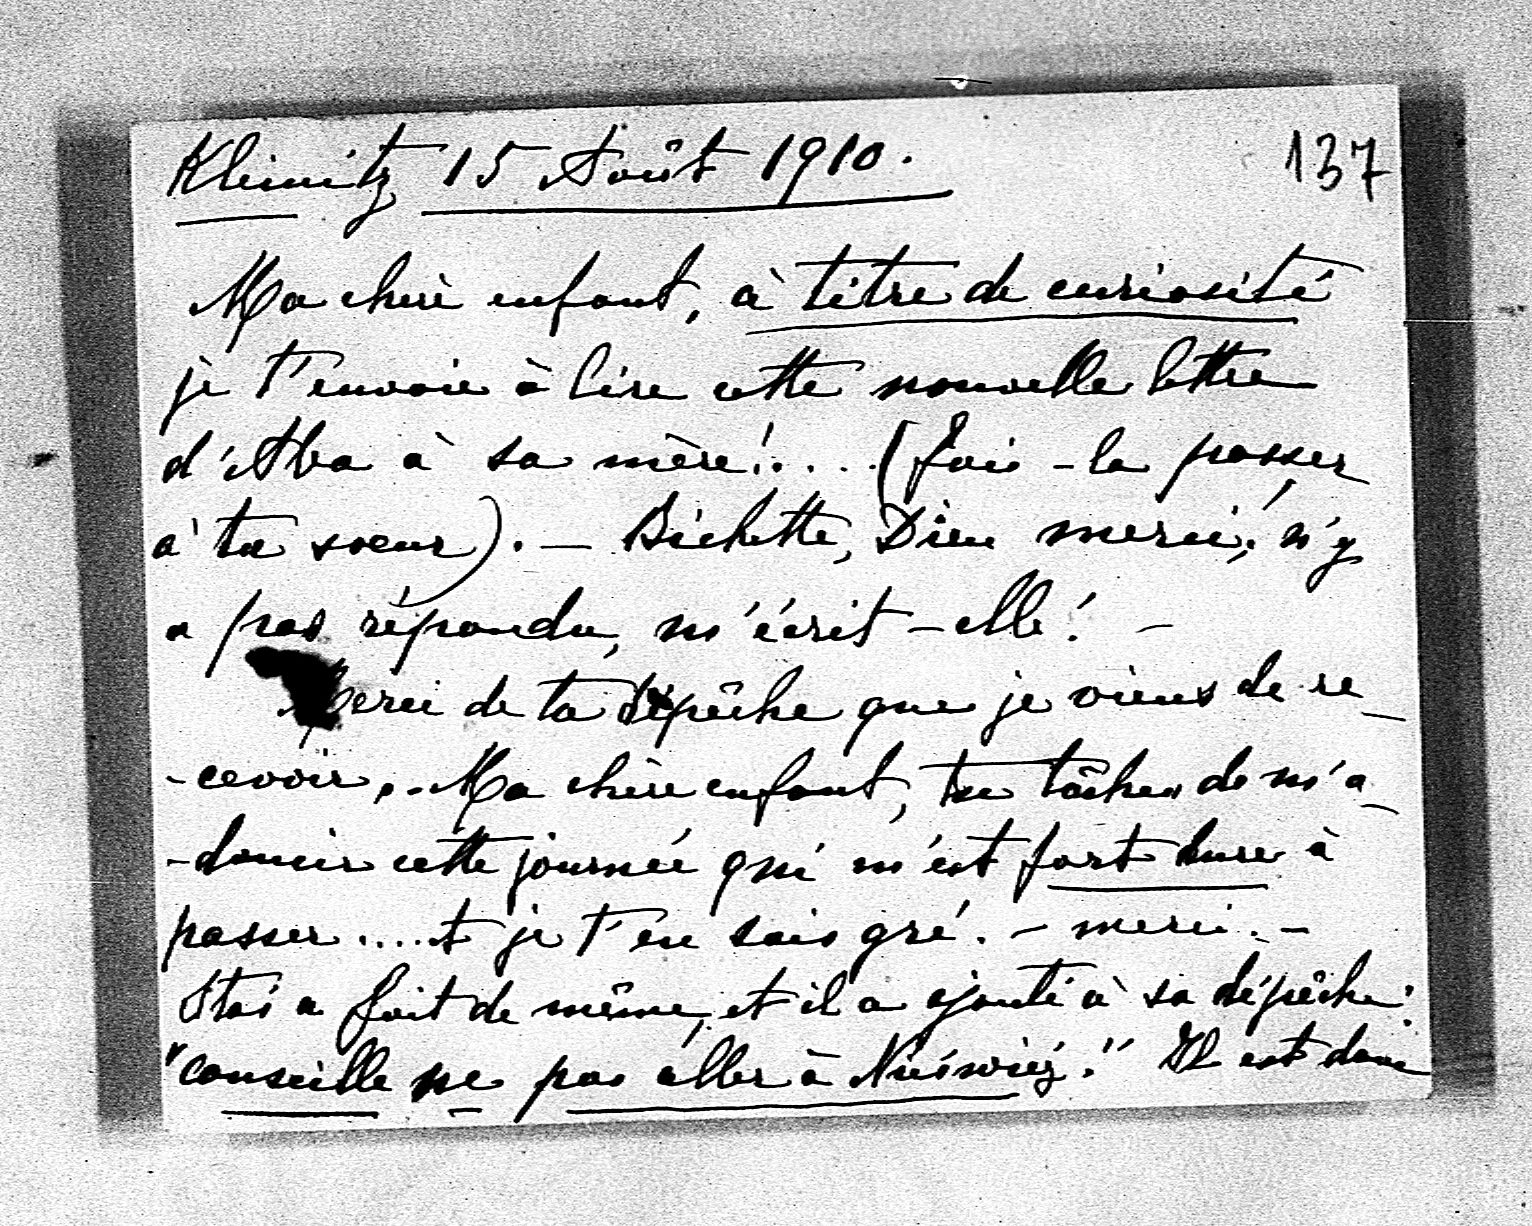 Kleinitz 15 Août 1910.
137
Ma chère enfant, à titre de curiosité
je t'envoie à lire cette nouvelle lettre
d'Aba à sa mère!.... (fais-la passer
à ta soeur). — Bichette, Dieu merci! n'y
a pas répondu, m'écrit-elle! —
Merci de ta dépêche que je viens de re-
-cevoir,.. Ma chère enfant, tu tâches de m'a-
-doucir cette journée qui m'est fort dure à
passer....t je t'en sais gré. — merci. —
Stas a fait de même, et il a ajouté à sa dépêche:
"conseille ne pas aller à Nieśwież." Il est donc